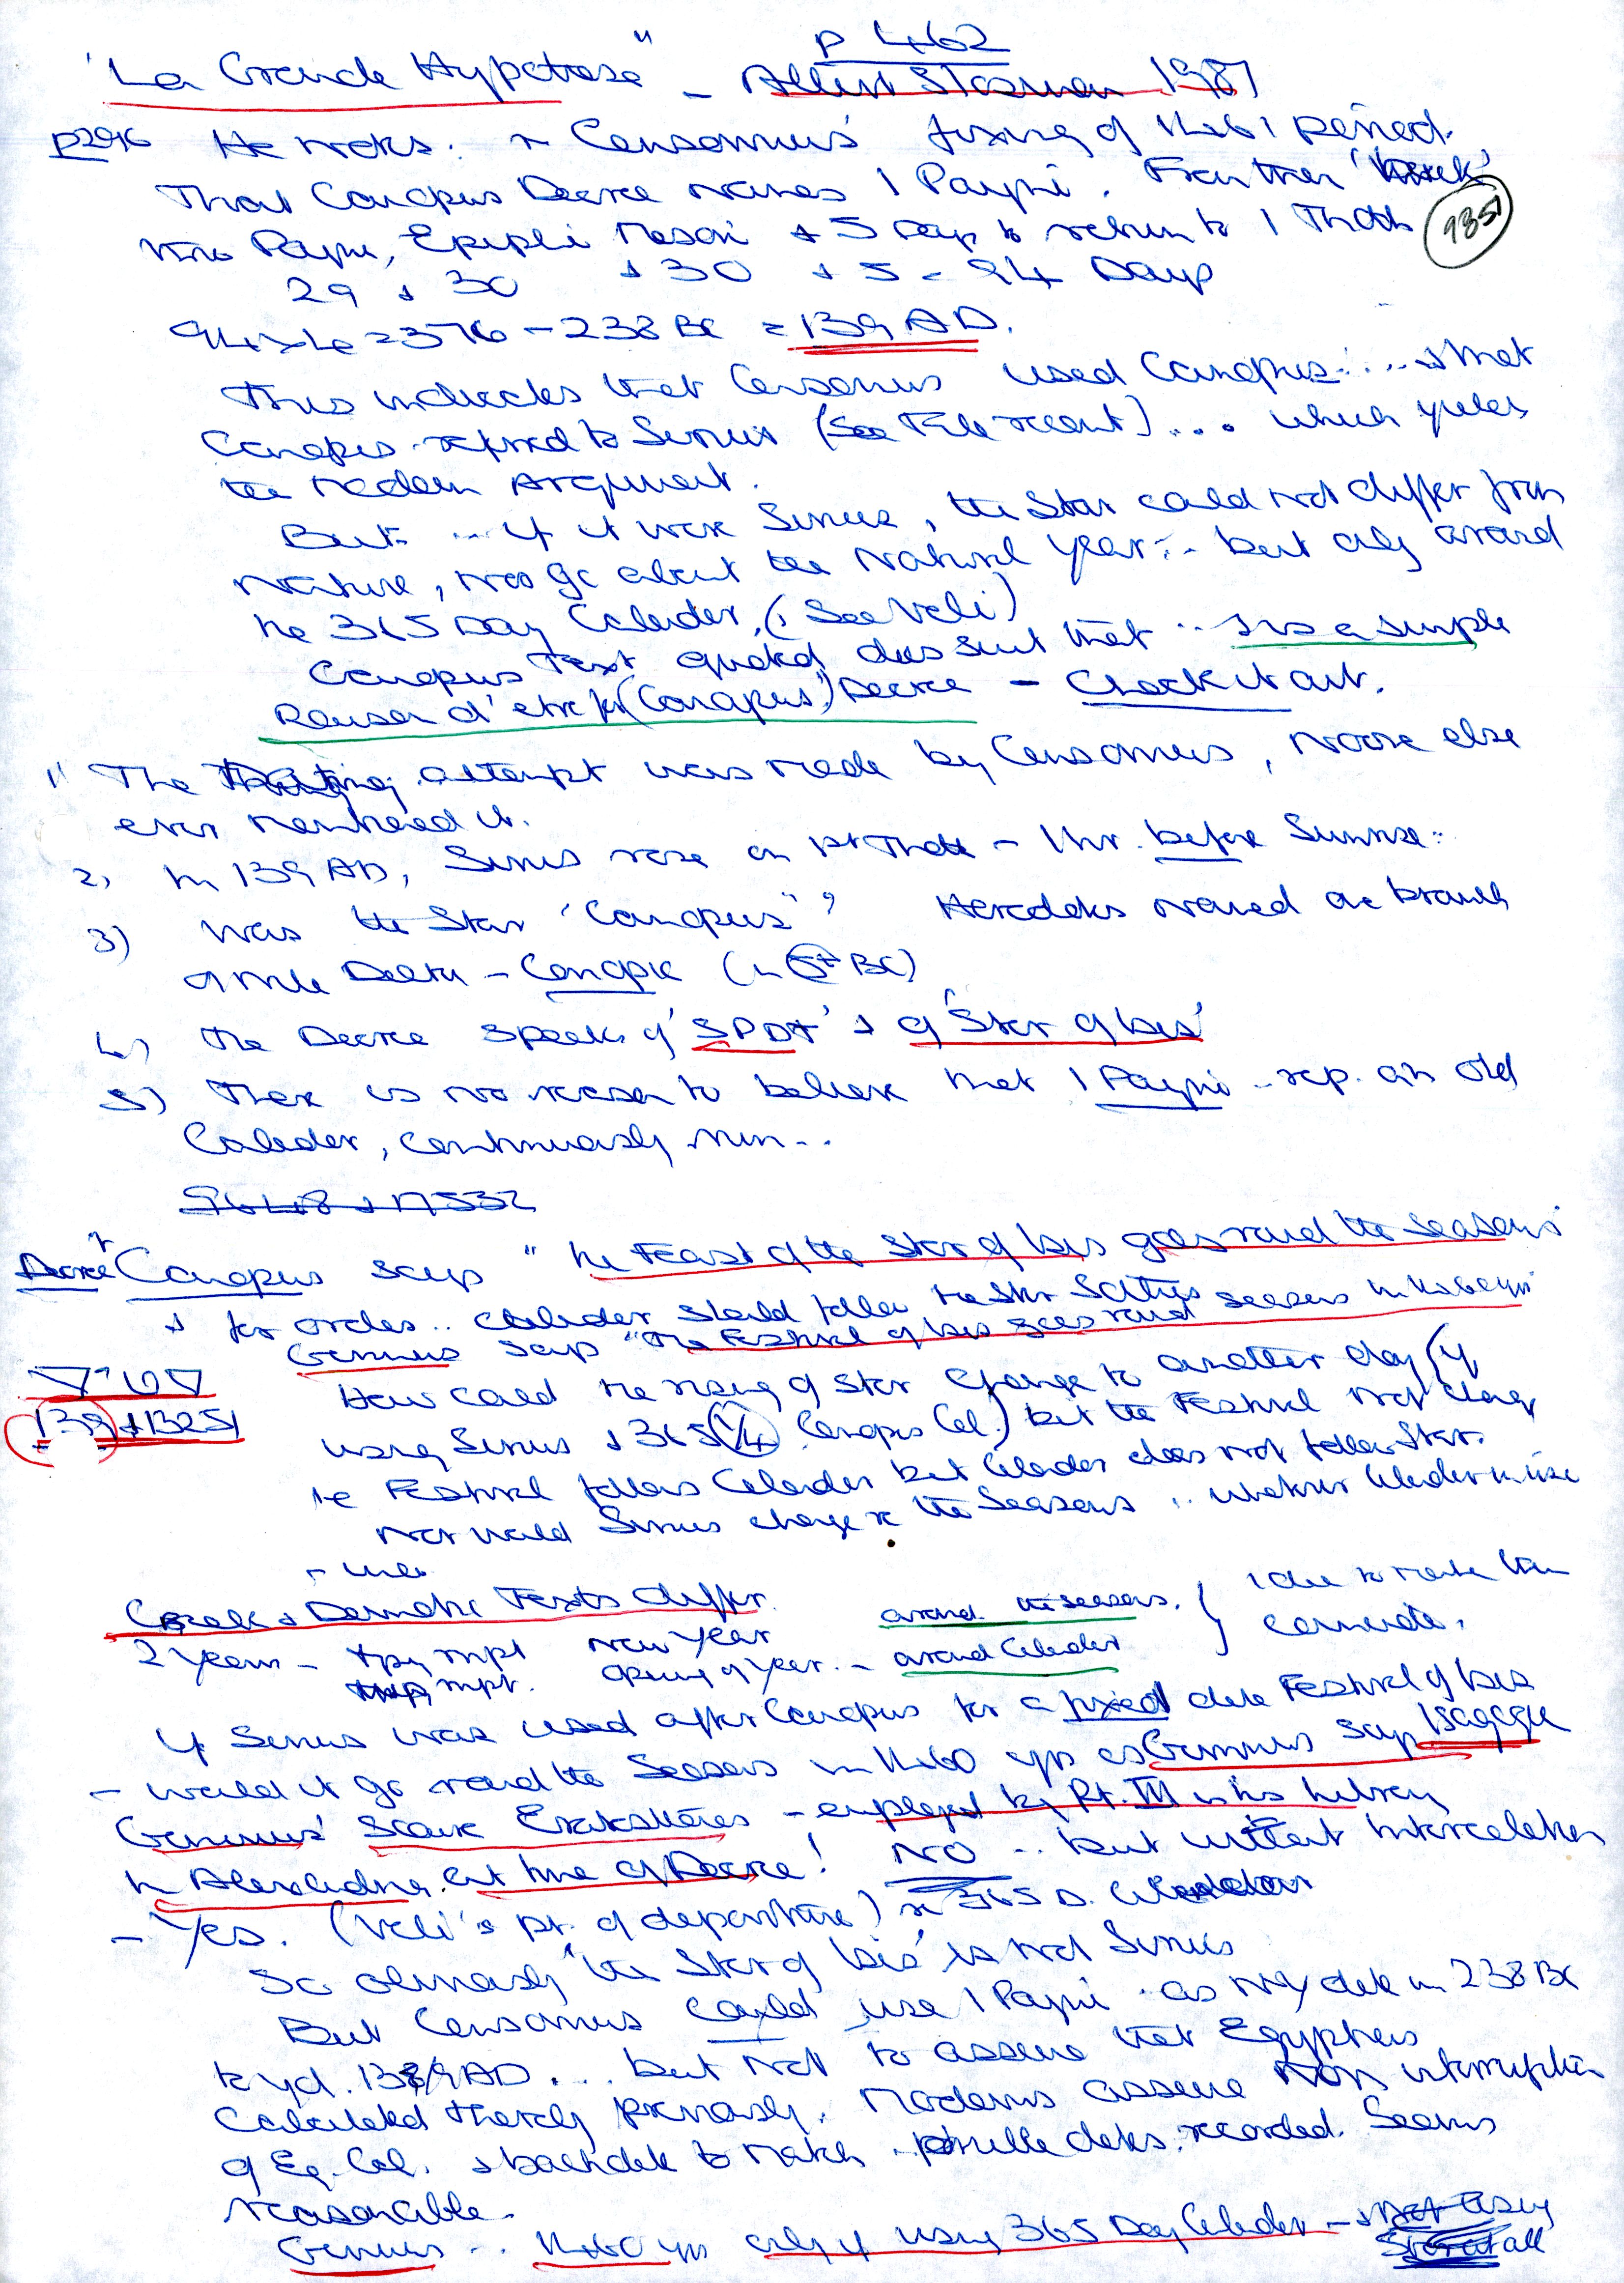 p 462
"La Grande Hypotrese" - Albert Slosman 1987
p296 He notes. Censorinus' fixing of 1461 period.
That Canopus Decree names 1 Payni. Further
thro Payni, Epiphi Mesori + 5 Days to return to 1 Thoth
985
29 + 30 + 30 + 5 = 94 Days
94 x 4 = 376 - 238 BC = 139 AD.
This indicates that Censorinus used Canopus .... & that
Canopus referred to Sirius (See File recent] ... which yields
the modern Argument.
But ... if it were Sirius, the Star could not differ from
nature, nor go about the Natural year .. but only around
the 365 Day Calender, (See Veli)
Canopus Text quoted does suit that .. It is a simple
Raison d'etre for (Canopus) Decree - Check it out.
1" The attempt was made by Censorinus, noone else
ever mentioned it.
2, In 139 AD, Sirius rose on 1st Thoth - 1hr. before Sunrise:
3) Was the Star 'Canopus"? Herodotus named one branch
of Nile Delta - Canopic (in 5th BC)
4) The Decree speaks of 'SPDT' & of 'Star of Isis'
5) There is no reason to believe that 1 Payni - rep. an old
Calender, continuously run...
Decree Canopus says "the Feast of the Star of Isis goes round the Seasons"
& for orders .. Calender should follow the Star Sothis
Geminus says "the Festival of Isis goes round seasons in 1460 yrs"
139 + 1325
How could the rising of Star change to another day (if
using Sirius + 365 1/4 Canopus Cal.) but the Festival not change
ie Festival follows Calender but Calender does not follow Star.
Nor would Sirius change the Seasons .. whatever Calender in use
Greek & Demotic Texts differ.
2 Years - tpy rnpt New Year around the seasons.
rnpt. opening of Year. - around Calender
} due to make them coincide.
If Sirius was used after Canopus for a fixed date Festival of Isis
- would it go round the Seasons in 1460 yrs as Geminus says Isagoge
Geminus' source Eratosthenes - employed by Pt. III in his library
in Alexandria at time of Decree! NO .. but without Intercalation
- Yes. (Veli's pt. of departure) 365 D. Calendar
So obviously 'the Star of Isis' is not Sirius
But Censorinus could use 1 Payni as NY date in 238 BC
to yd. 138/9 AD ... but not to assume that Egyptians
calculated thereby previously. Moderns assume non interruption
of Eg. Cal. & backdate to match possible dates. recorded. Seems
reasonable.
Geminus .. 1460 yrs only if using 365 Day Calender - & Not using
Star at all